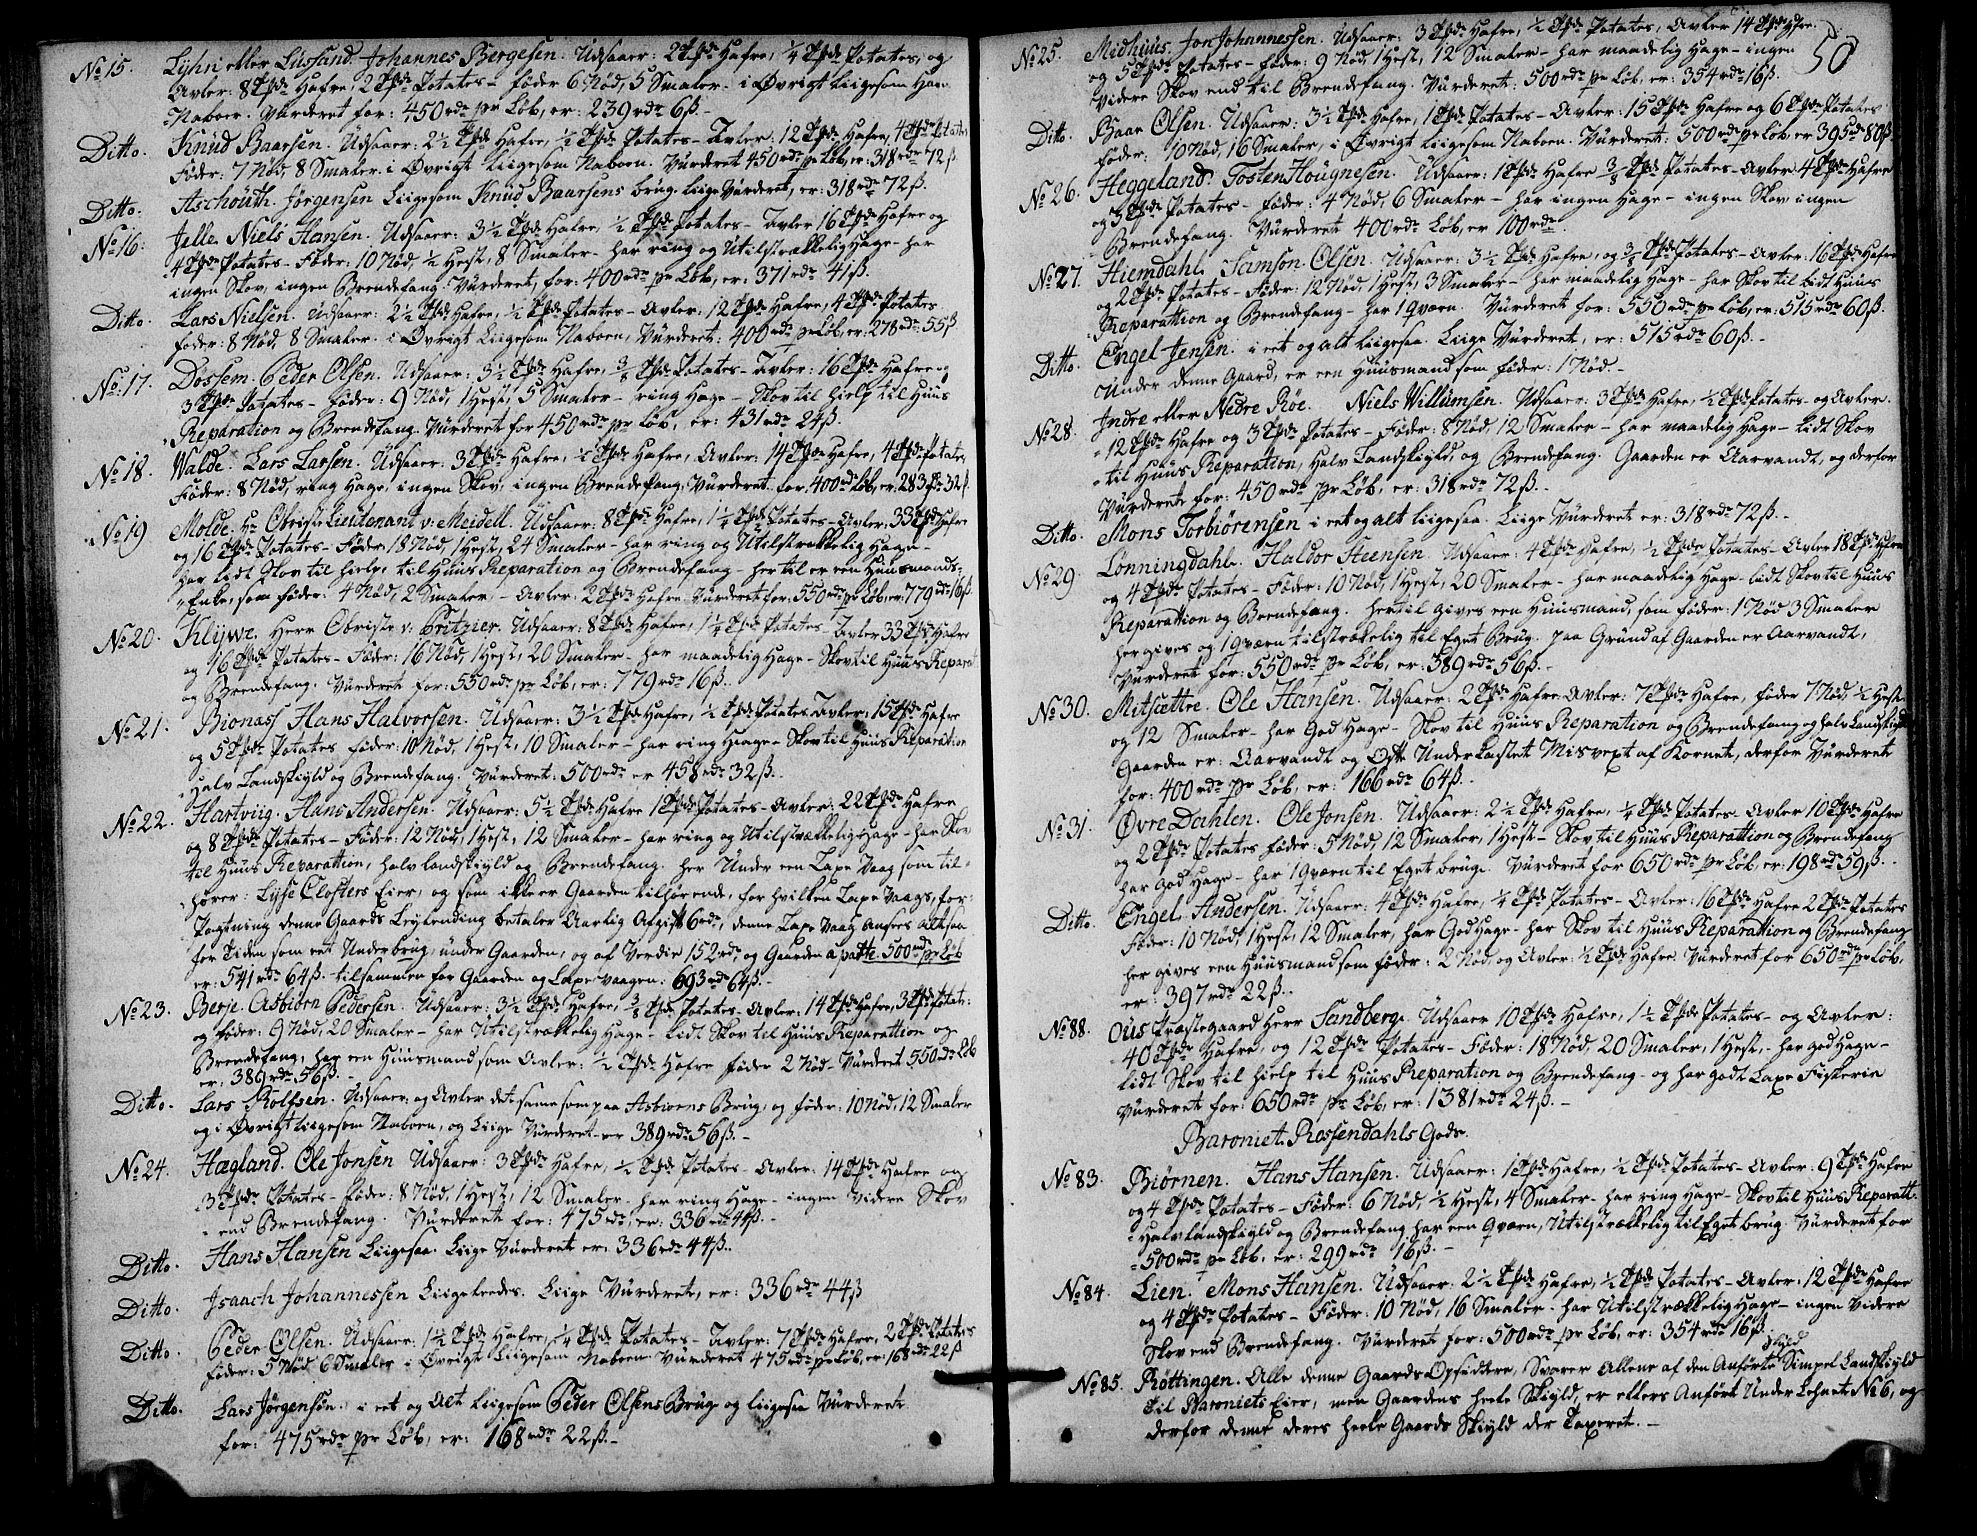 No 15. Lijhn eller Lussand. Johannes Bergesen. Udsaaer: 2 Tpdr Hafre, 1/4 Tpdr Potates, og
Avler: 8 Tpdr Hafre, 2 Tpdr Potates - føder 6 Nød, 5 Smaler - i Øvrigt liigesom Hans
Naboer. Vurderet for: 450 rdr pr Løb, er: 239 rdr 6 ß. -
Ditto. Knud Baarsen. Udsaaer: 2 1/2 Tpdr Hafre, 1/2 Tpdr Potates - Avler: 12 Tpdr Hafre, 4 Tpdr Potates
Føder: 7 Nød, 8 Smaler. i Øvrigt liigesom Naboen. Vurderet 450 rdr pr Løb, er: 318 rdr 72 ß.
Ditto. Aschouth Jørgensen Liigesom Knud Baarsens brug. liige Vurderet, er: 318 rdr 72 ß.
No 16: Jelle. Niels Hansen. Udsaaer: 3 1/2 Tpdr Hafre, 1/2 Tpdr Potates - Avler 16 Tpdr Hafre og
4 Tpdr Potates - Føder: 10 Nød, 1/2 Hest, 8 Smaler - har ring og Utilstrækkelig Hage - har
ingen Skov, ingen Brendefang. Vurderet, for: 400 rdr pr Løb, er: 371 rdr 41 ß.
Ditto. Lars Nielsen. Udsaaer: 2 1/2 Tpdr Hafre, 1/2 Tpdr Potates - Avler: 12 Tpdr Hafre, 4 Tpdr Potates
føder: 8 Nød, 8 Smaler. i Øvrigt Liigesom Naboen, Vurderet: 400 rdr pr Løb, er: 278 rdr 55 ß
No: 17. Døssem. Peder Olsen. Udsaaer: 3 1/2 Tpdr Hafre, 3/8 Tpdr Potates - Avler: 16 Tpdr Hafre og
3 Tpdr Potates - Føder: 9 Nød, 1 Hest, 5 Smaler - ring Hage - Skov til hielp til Huus
Reparation og Brendefang. Vurderet for 450 rdr pr Løb, er: 431 rdr 24 ß.
No 18. Walde. Lars Larsen. Udsaaer: 3 Tpdr Hafre, 1/2 Tpdr Hafre, Avler: 14 Tpdr Hafre, 4 Tpdr Potates,
Føder: 8 Nød, ring Hage, ingen Skov, ingen Brendefang. Vurderet for: 400 rdr Løb, er: 283 rdr 32 ß.
No 19 Molde. Hr Obrist Lieutenant v: Meidell. Udsaaer: 8 Tpdr Hafre, 1 1/4 Tpdr Potates - Avler: 33 Tpdr Hafre
og 16 Tpdr Potates - Føder 18 Nød, 1 Hest, 24 Smaler - har ring og Utilstrækkelig Hage -
har lidt Skov til hielp, til Huus Reparation og Brendefang - her til er een Huusmands-
Enke, som føder: 4 Nød, 2 Smaler. - Avler: 2 Tpdr Hafre Vurderet for: 550 rdr pr Løb, er: 779 rdr 16 ß.
No 20. Klijwe. Herr Obriste v. Fritzier. Udsaaer: 8 Tpdr Hafre, 1 1/4 Tpdr Potates Avler 33 Tpdr Hafre
og 16 Tpdr Potates - Føder: 16 Nød, 1 Hest, 20 Smaler - har maadelig Hage - Skov til Huus Reparat
og Brendefang. Vurderet for: 550 rdr pr Løb, er: 779 rdr 16 ß.
No 21. Bionass Hans Halvorsen. Udsaaer: 3 1/2 Tpdr Hafre, 1/2 Tpdr Potates Avler: 15 Tpdr Hafre
og 5 Tpdr Potates føder: 10 Nød, 1 Hest, 10 Smaler - har ring Hage - Skov til Huus Reparation
Halv Landskyld og Brendefang. Vurderet: 500 rdr er 458 rdr 32 ß.
No 22. Hartvig. Hans Andersen. Udsaaer: 5 1/2 Tpdr Hafre 1 Tpdr Potates - Avler: 22 Tpdr Hafre
og 8 Tpdr Potates - Føder: 12 Nød, 1 Hest, 12 Smaler - har ring og Utilstrækkelig Hage - har Skov
til Huus Reparation, halv landskyld og Brendefang. her Under een Laxe Vaag som til-
hører: Lyse Closters Eier, og som ikke er Gaarden tilhørende, for hvilken Laxe Vaags, for-
Pagtning denne Gaards Leylending betaler Aarlig Afgift 6 rdr, denne Laxe Vaag Ansees altsaa
for Tiden som eet Underbrug, under Gaarden, og af Verdie 152 rdr, og Gaarden a parte. 500 rdr pr Løb
er: 541 rdr 64 ß. tilsammen for Gaarden og Laxe vaagen: 693 rdr 64 ß.
No 23. Berje. Asbiørn Pedersen. Udsaaer: 3 1/2 Tpdr Hafre, 3/8 Tpdr Potates - Avler: 14 Tpdr Hafre, 3 Tpdr Potat:
og føder: 9 Nød, 20 Smaler - har Utilstrækkelig Hage - lidt Skov til Huus Reparation og
Brendefang, har een Huusmand som Avler: 1/2 Tpdr Hafre føder 2 Nød - Vurderet 550 rdr Løb
er: 389 rdr 56 ß. -
Ditto. Lars Rolfsen. Udsaaer: og Avler det samme som paa Asbiørns Brug, og føder: 10 Nød, 12 Smaler
og i Øvrigt liigesom Naboen, og Liige Vurderet - er 389 rdr 56 ß. -
No 24. Hægland. Ole Jonsen Udsaaer: 3 Tpdr Hafre, 1/2 Tpdr Potates - Avler: 14 Tpdr Hafre og
3 Tpdr Potates - føder: 8 Nød, 1 Hest, 12 Smaler - har ring Hage - ingen videre Skov
end Brendefang. Vurderet for: 475 rdr, er: 336 rdr 44 ß. -
Ditto. Hans Hansen Liigesaa. Liige Vurderet er: 336 rdr 44 ß..
Ditto. Isaach Johannessen Liigeledes. Liige Vurderet, er: 336 rdr 44 ß
Ditto. Peder Olsen. Udsaaer: 1 1/2 Tpdr Hafre, 1/4 Tpdr Potates - Avler: 7 Tpdr Hafre, 2 Tpdr Potates
føder: 5 Nød, 6 Smaler - i Øvrigt Liigesom Naboen Vurderet 475 rdr pr Løb, er: 168 rdr 22 ß
Ditto. Lars Jørgensøn. i eet og Alt liigesom Peder Olsens Brug og liigesaa Vurderet
for: 475 rdr pr Løb, er: 168 rdr 22 ß. -
50
No 25. Midhuus. Jon Johannessen. Udsaaer: 3 Tpdr Hafre, 1/2 Tpdr Potates, Avler 14 Tpdr Hafre.
og 5 Tpdr Potates - føder: 9 Nød, 1 Hest, 12 Smaler - har maadelig Hage - ingen
Videre Skov end til Brendefang. Vurderet: 500 rdr pr Løb, er: 354 rdr 16 ß.
Ditto. Baar Olsen. Udsaaer: 3 1/2 Tpdr Hafre, 1 Tpdr Potates - Avler: 15 Tpdr Hafre og 6 Tpdr Potates
føder: 10 Nød, 16 Smaler, i Øvrigt liigesom Naboen. Vurderet: 500 rdr pr Løb er 395 rdr 80 ß.
No 26. Heggeland. Tosten Hougnesen. Udsaaer: 1 Tpdr Hafre 3/8 Tpdr Potates - Avler: 4 Tpdr Hafre
og 3 Tpdr Potates - føder: 4 Nød, 6 Smaler - har ingen Hage - ingen Skov ingen
Brendefang. Vurderet 400 rdr Løb, er 100 rdr.
No 27. Hiemdahl. Samson Olsen. Udsaaer: 3 1/2 Tpdr Hafre, og 3/8 Tpdr Potates - Avler: 16 Tpdr Hafre
og 2 Tpdr Potates - Føder: 12 Nød 1 Hest, 3 Smaler - har maadelig Hage - har Skov til lidt Huus
Reparation og Brendefang - har 1 qværn. Vurderet for: 550 rdr pr Løb, er: 515 rdr 60 ß.
Ditto. Engel Jensen. i eet og alt liigesaa. Liige Vurderet, er: 515 rdr 60 ß. -
Under denne Gaard, er een Huusmand som føder: 1 Nød. -
No 28. Indre eller Nedre Røe. Niels Willumsen. Udsaaer: 3 Tpdr Hafre, 1/2 Tpdr Potates - og Avler.
12 Tpdr Hafre og 3 Tpdr Potates - Føder: 8 Nød, 12 Smaler - har maadelig Hage - lidt Skov
til Huus Reparation, Halv Landskyld, og Brendefang. Gaarden er Aarvandt, og derfor
Vurderet for: 450 rdr pr Løb, er: 318 rdr 72 ß. -
Ditto. Mons Torbiørensen i eet og alt liigesaa. Liige Vurderet er: 318 rdr 72 ß. -
No 29. Lønningdahl. Haldor Steensen. Udsaaer: 4 Tpdr Hafre, 1/2 Tpdr Potates - Avler 18 Tpdr Hafre
og 4 Tpdr Potates - Føder: 10 Nød, 1 Hest, 20 Smaler - har maadelig Hage - lidt Skov til Huus
Reparation og Brendefang. hertil gives een Huusmand, som føder: 1 Nød 3 Smaler
her gives og 1 qværn tilstrækelig til Eget Brug. paa Grund af Gaarden er Aarvandt,
Vurderet for: 550 rdr pr Løb, er: 389 rdr 56 ß. -
No 30. Mitsættre. Ole Hansen. Udsaaer: 2 Tpdr Hafre Avler: 7 Tpdr Hafre, føder 7 Nød, 1/2 Hest
og 12 Smaler - har God Hage - Skov til Huus Reparation og Brendefang og halv Landskyld
Gaarden er: Aarvandt og Ofte Underkastet Misvext af Kornet, derfor Vurderet
for: 400 rdr pr Løb, er: 166 rdr 64 ß. -
No 31. Øvre Dahlen. Ole Jonsen. Udsaaer: 2 1/2 Tpdr Hafre, 1/4 Tpdr Potates - Avler 10 Tpdr Hafre
og 2 Tpdr Potates føder: 5 Nød, 12 Smaler, 1 Hest - Skov til Huus Reparation og Brendefang
har God Hage - har 1 qværn til Eget brug. Vurderet for 650 rdr pr Løb, er: 198 rdr 59 ß. -
Ditto. Engel Andersen. Udsaaer: 4 Tpdr Hafre, 1/4 Tpdr Potates - Avler: 16 Tpdr Hafre 2 Tpdr Potates
Føder: 10 Nød, 1 Hest, 12 Smaler, har God Hage - har Skov til Huus Reparation og Brendefang
her gives een Huusmand som føder: 2 Nød og Avler: 1/2 Tpdr Hafre. Vurderet for 650 rdr pr Løb,
er: 397 rdr 22 ß.
No 88. Ous Præstegaard Herr Sandberg. Udsaaer 10 Tpdr Hafre, 1 1/2 Tpdr Potates - og Avler:
40 Tpdr Hafre, og 12 Tpdr Potates - Føder: 18 Nød, 20 Smaler, 1 Hest, - har god Hage -
lidt Skov til hielp til Huus Reparation og Brendefang - og har godt Laxe Fiskerie
Vurderet for: 650 rdr pr Løb, er: 1381 rdr 24 ß. -
Baroniet Rossendahls Gods.
No 83. Biørnen. Hans Hansen. Udsaaer: 1 Tpdr Hafre, 1/2 Tpdr Potates - Avler: 9 Tpdr Hafre
og 4 Tpdr Potates - Føder: 6 Nød, 1/2 Hest, 4 Smaler - har ring Hage - Skov til Huus Reparatt.
Halv landskyld og Brendefang har een qværn, Utilstrækkelig til Eget brug. Vurderet for
500 rdr pr Løb, er: 299 rdr 16 ß. -
No 84. Lien. Mons Hansen. Udsaaer: 2 1/2 Tpdr Hafre, 1/2 Tpdr Potates - Avler: 12 Tpdr Hafre
og 4 Tpdr Potates - Føder: 10 Nød, 16 Smaler - har Utilstrækkelig Hage - ingen Videre
Skov end Brendefang. Vurderet for: 500 rdr pr Løb, er: 354 rdr 16 ß.
No 85. Røttingen. Alle denne Gaards Opsiddere, Svarer Allene af den Anførte Simpel Landskyld
til Baroniets Eier, men Gaardens heele Skyld, er ellers Anført Under Lehnet No 6, og
derfor denne deres heele Gaards Skyld der Taxeret. -